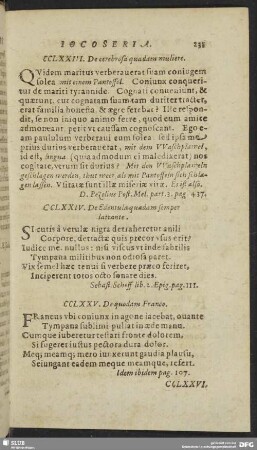 IOCOSERIA. 238
CCLXXIII. De cerebrosa quadam muliere.
QVidem maritus verberauerat suam coniugem
solea mit einem Pantoffel. Coniunx conqueri-
tur de mariti tyrannide. Cognati conueniunt, &
quærunt, cur cognatam suam tam duriter tractet,
erat familia honesta, & ægre ferebat? Ille respon-
dit, se non iniquo animo ferre, quod eum amice
admoneant petit vt caussam cognoscant. Ego e-
am paululum verberaui cum solea sed ipsa me
prius durius verberauit, mit dem VVaschplawel,
id est, lingua (quia admodum ei maledixerat) nos
cogitate. verum sit durius? Mit den VVaschplaweln
geschlagen werden, thut weer, als mit Pantoffeln sich schla-
gen lassen. Vsitatæ sunt illæ miseriæ viræ. Ex ist also.
D. Pezelius Post. Mel. part. 2. pag. 437.
CCLXXIV. De Edentula quadam semper
latrante.
SI cutis à vetulæ nigra detraheretur anili
Corpore, detractæ quis precor vsus erit?
Iudice me nullus: nisi viscus vt inde fabrilis
Tympana militibus non odiosa paret.
Vix semel hæc tenui si verbere præco feriret,
Inciperent totos octo sonare dies.
Sebast. Scheff. lib. 2. Epig. pag. 111.
CCLXXV. De quodam Franco.
FRancus vbi coniunx in agone iacebat, ouante
Tympana sublimi pulsat in æde manu.
Cumque iuberetur testari fronte dolorem,
Si sugeret iustus pectora dura dolor.
Meq; meamq; mero iunxerunt gaudia plausit,
Seiungant eadem meque meamque, refert.
Idem ibidem pag. 107.
CCLXXVI.
SLUB